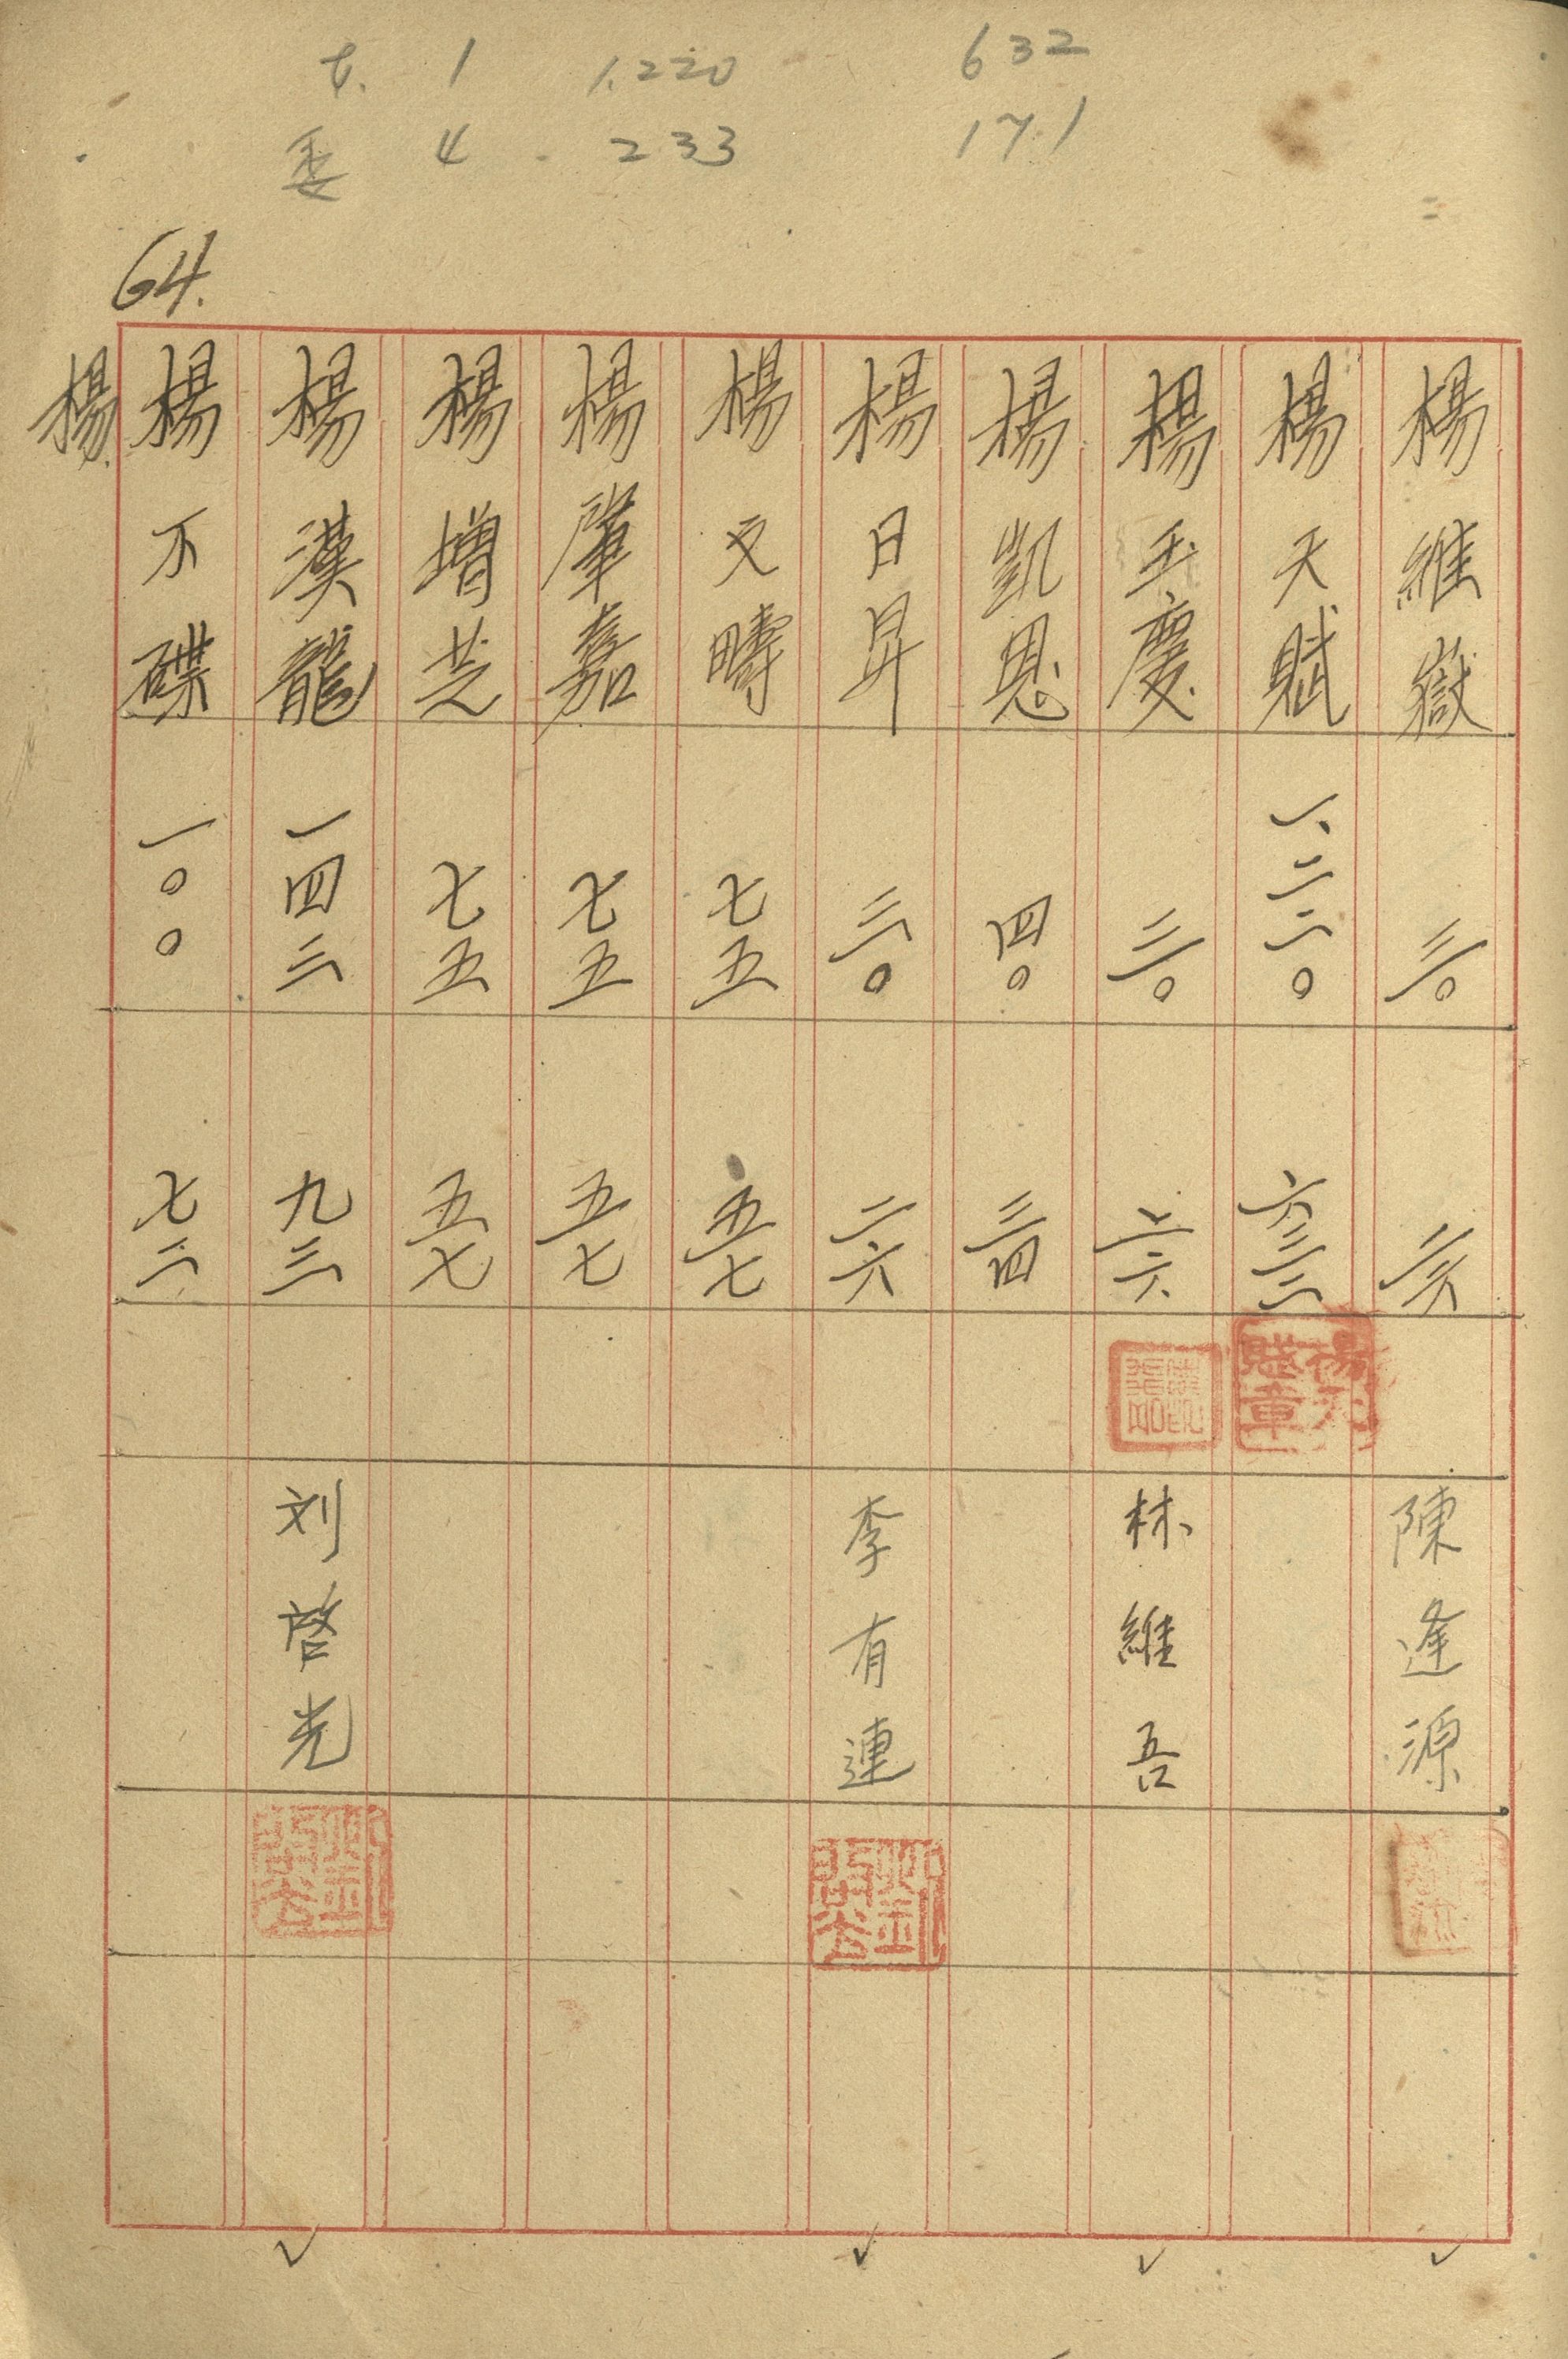 1 1,220 632
委 4 233 171
64.
楊維嶽 三〇 二六 陳逢源
楊天賦 一、二二〇 六三二 楊天賦章
楊玉慶 三〇 二六 林維吾
楊凱恩 四〇 三四
楊日昇 三〇 二六 李有連
楊文疇 七五 五七
楊肇嘉 七五 五七
楊增芝 七五 五七
楊漢龍 一四三 九三 刘啓光
楊不碟 一〇〇 七二
楊